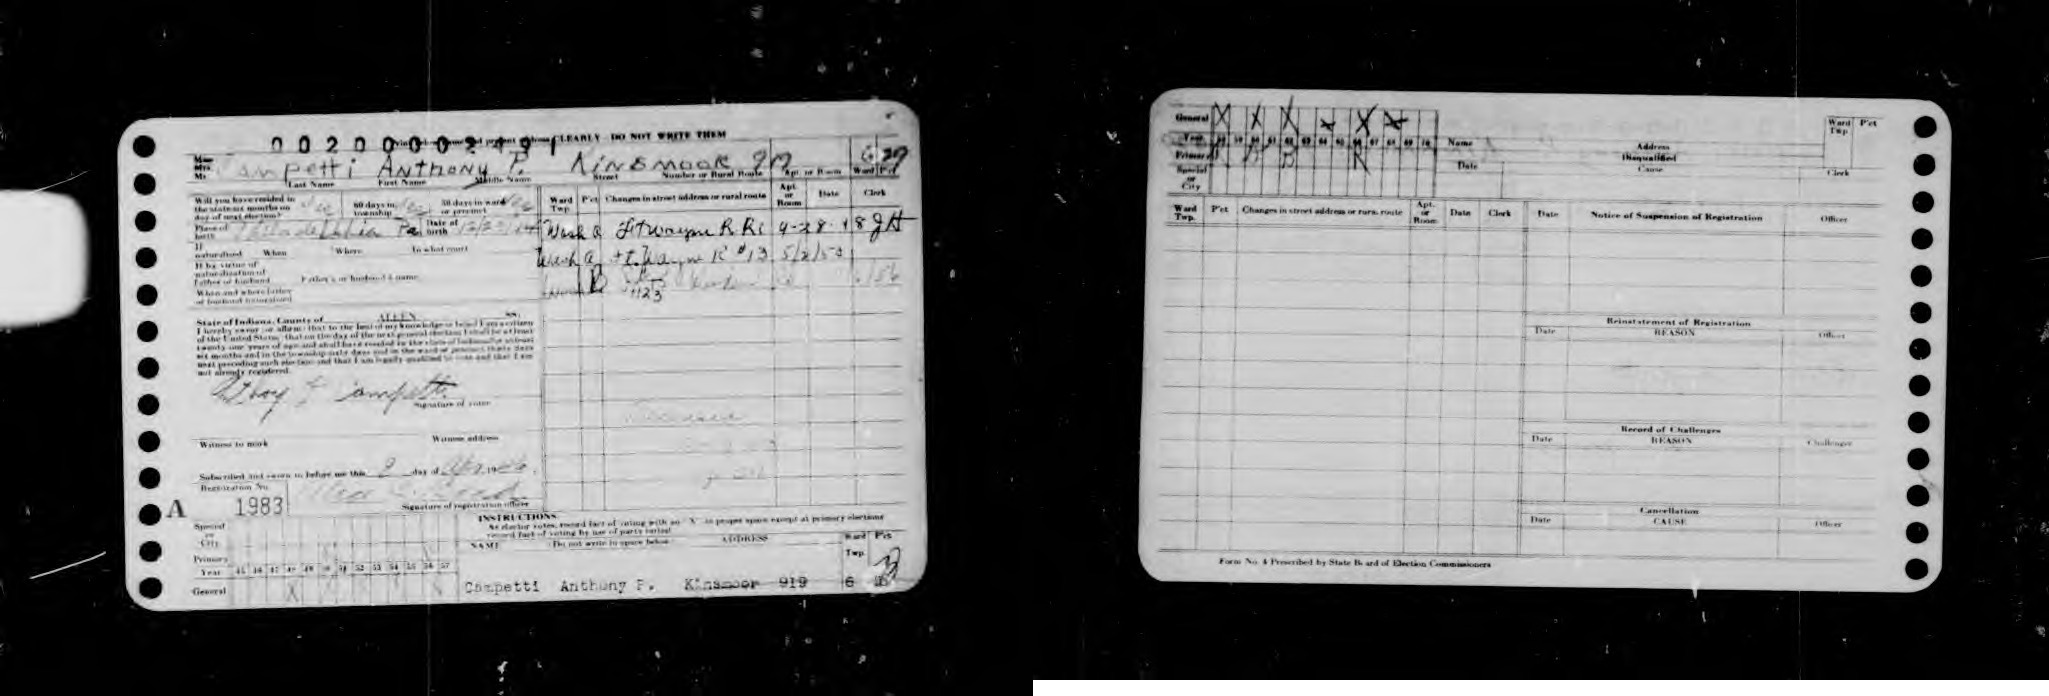 002000002491
CLEARLY - DO NOT WRITE THEM
Campetti Anthony P. Kinsmoor 919 6 29
Last Name First Name Middle Name Street Number or Rural Route Apt. or Room Ward Pct
Will you have resided in the state six months on day of next election? Yes 60 days in township Yes 30 days in ward or precinct Yes
Place of birth Philadelphia Pa. Date of birth
If naturalized When Where In what court
If by virtue of naturalization of father or husband Father's or husband's name
When and where father or husband naturalized
Ward Twp. Pct Changes in street address or rural route Apt. or Room Date Clerk
Wash a Ft Wayne R R1 4-28-48 JH
Wash a Ft. Wayne R #13 5/2/50
B 1123
State of Indiana, County of ALLEN ss:
I hereby swear (or affirm) that to the best of my knowledge or belief I am a citizen
of the United States; that on the day of the next general election I shall be at least
twenty-one years of age and shall have resided in the state of Indiana for at least
six months and in the township sixty days and in the ward or precinct thirty days
next preceding such election and that I am legally qualified to vote and that I am
not already registered.
Anthony P Campetti
Signature of voter
Witness to mark Witness address
Subscribed and sworn to before me this 9 day of Apr 19
Registration No.
A 1983
Signature of registration officer
INSTRUCTIONS
As elector votes, record fact of voting with an "X" in proper space except at primary elections
record fact of voting by use of party initial
Special or City
Primary
Year 45 46 47 48 49 50 51 52 53 54 55 56 57
General
NAME (Do not write in space below) ADDRESS Ward Twp. Pct
Campetti Anthony P. Kinsmoor 919 6
General X X X X X X
Year 58 59 60 61 62 63 64 65 66 67 68 69 70
Primary
Special or City
Name Address Ward Twp. Pct
Date Disqualified Cause Clerk
Ward Twp. Pct Changes in street address or rural route Apt. or Room Date Clerk
Date Notice of Suspension of Registration Officer
Reinstatement of Registration
Date REASON Officer
Record of Challenges
Date REASON Challenger
Cancellation
Date CAUSE Officer
Form No. 4 Prescribed by State Board of Election Commissioners